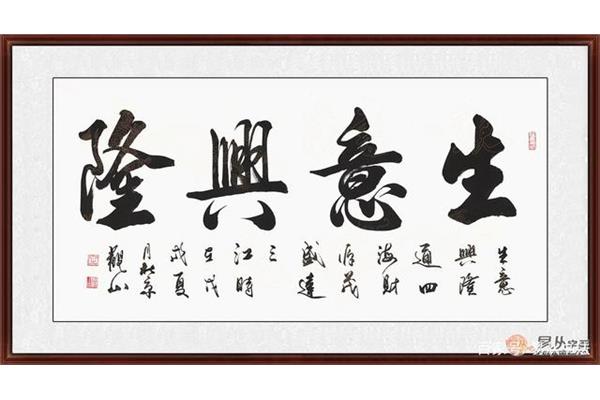 生意興隆
生意
興隆
通四
海財
源茂
盛達
三
江時
在戊
戌夏
月北京
觀山
易从字画